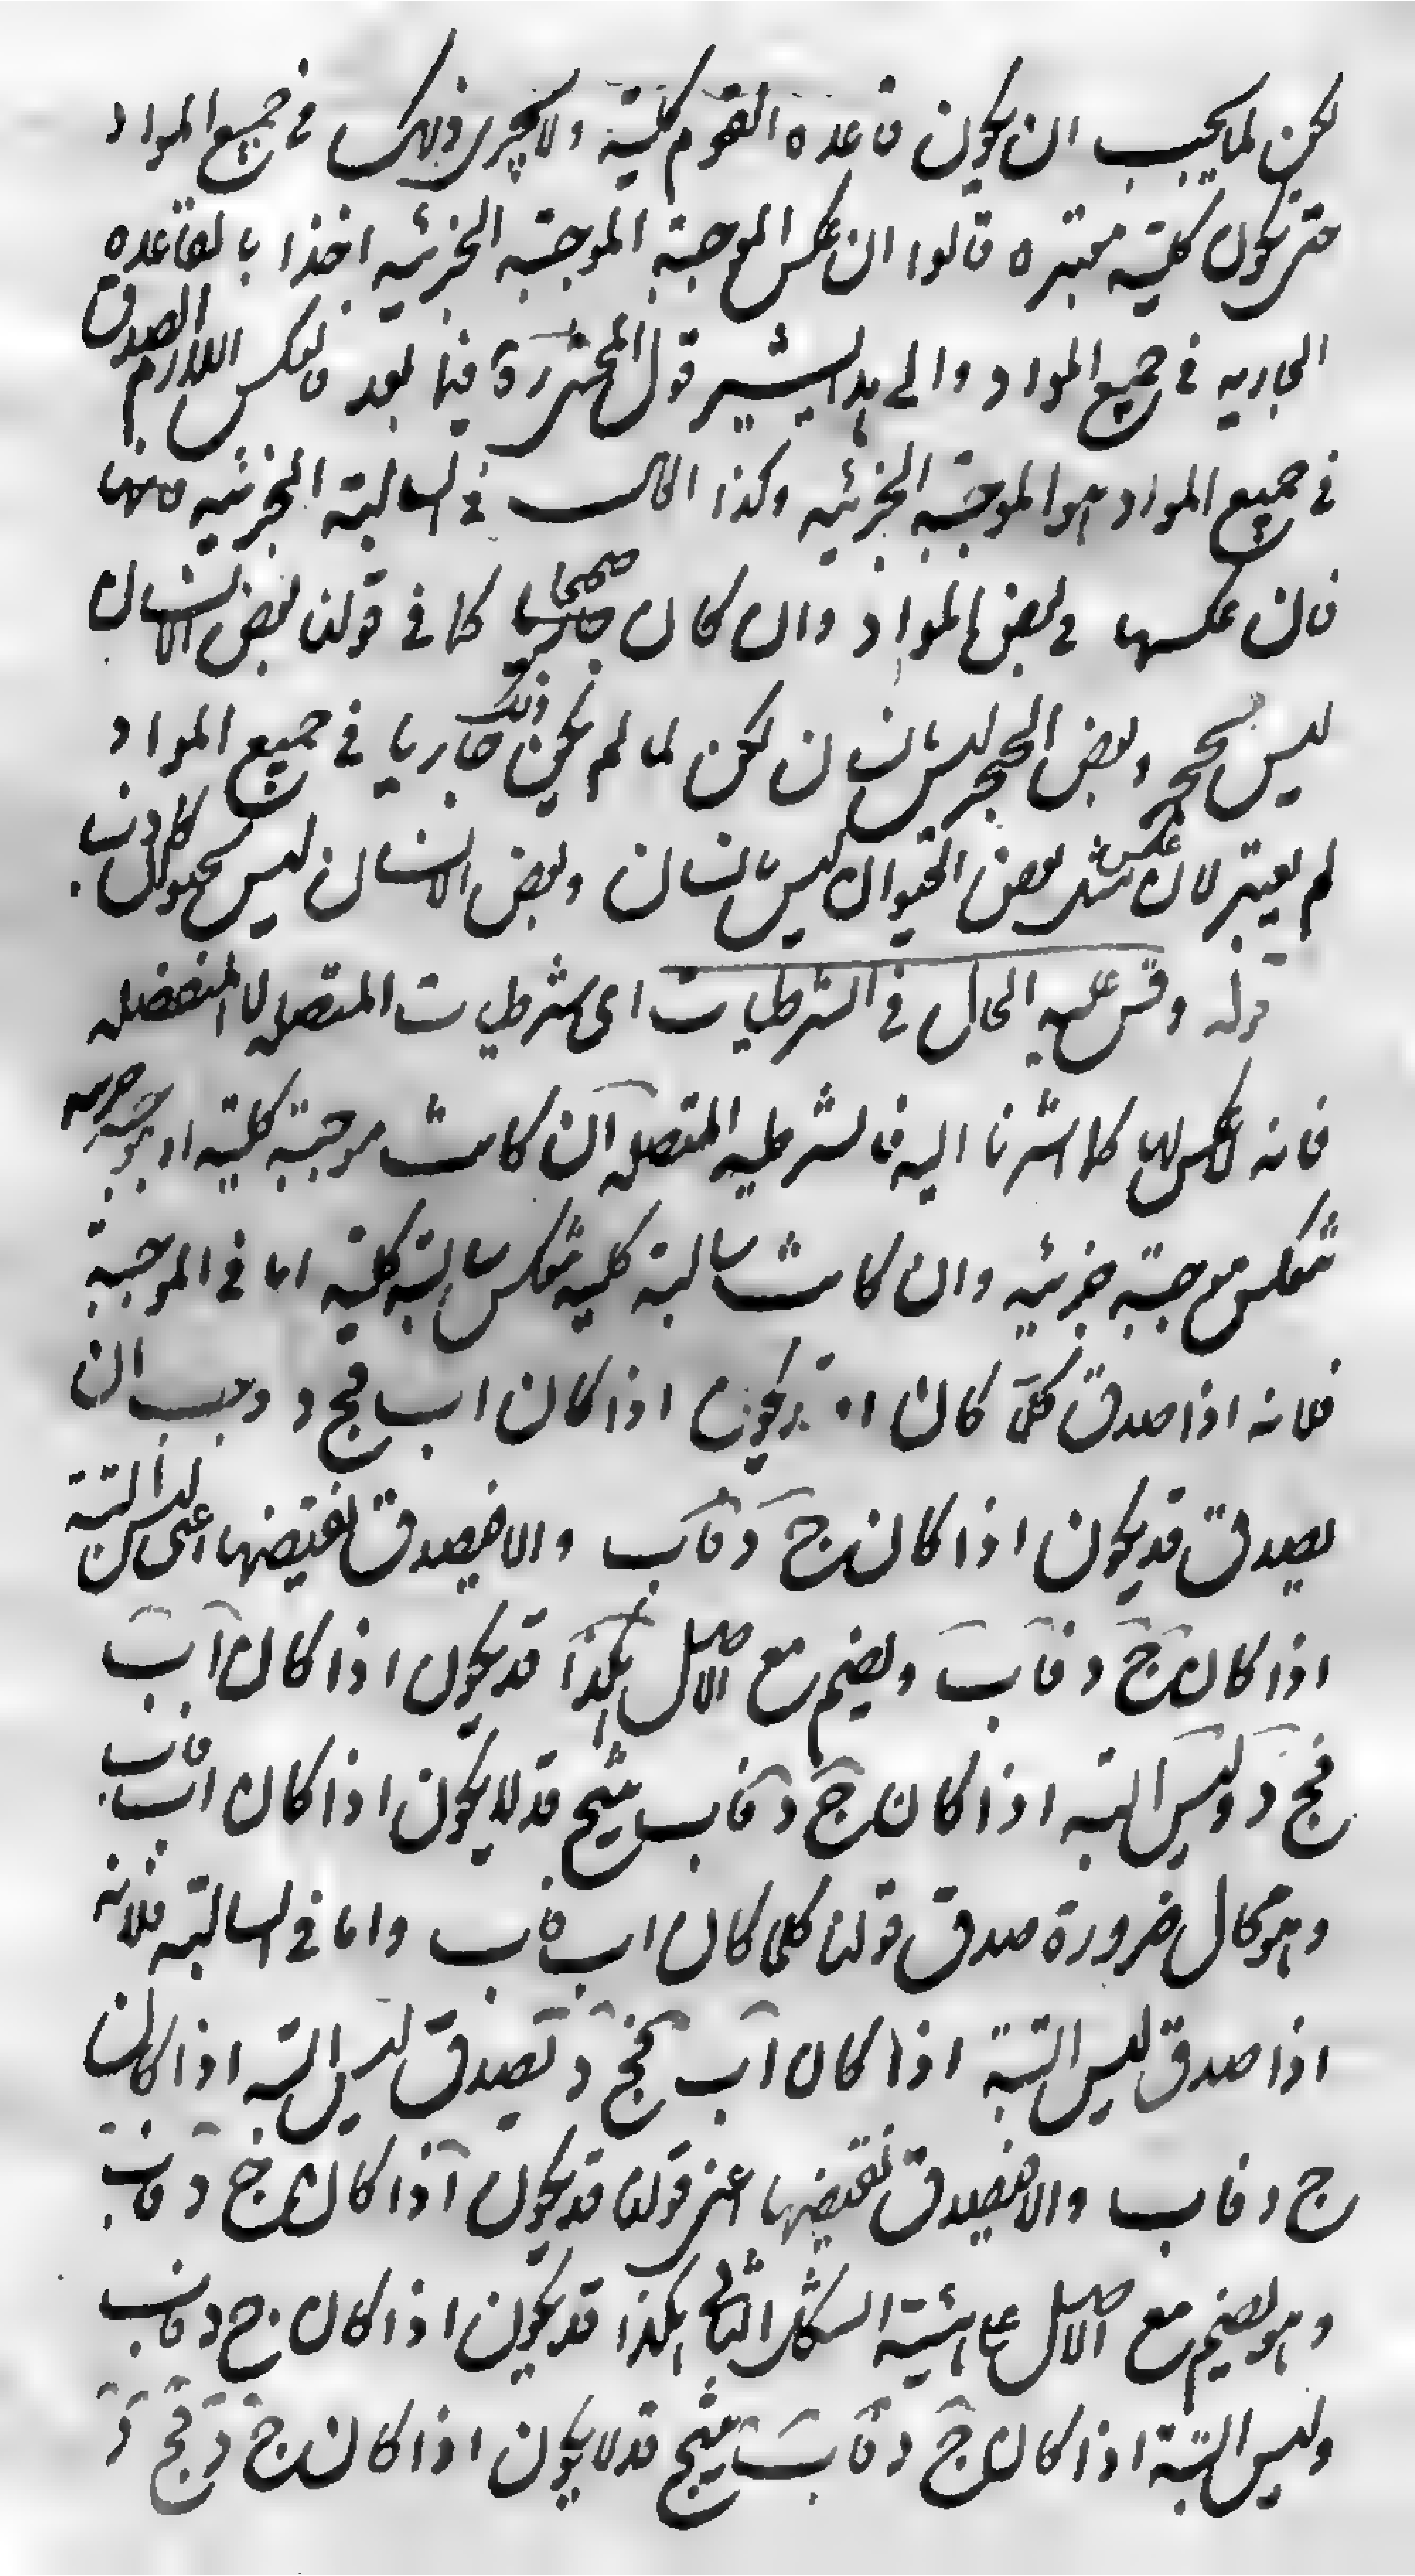 لكن لما يجب ان يكون قاعده القوم كلية ولا يجرى ذلك فى جميع المواد
حتى تكون كلية معتبره قالوا ان عكس الموجبة الموجبة الجزئيه اخذا بالقاعده
الجاريه فى جميع المواد والى هذا يشير قول المحشى ره فيما بعد فالعكس اللازم الصدق
فى جميع المواد هو الموجبة الجزئيه وكذا الحال فى السالبة الجزئيه منها
فان عكسها فى بعض المواد وان كان صحيحا كما فى قولنا بعض الانسان
ليس بحجر وبعض الحجر ليس بانسان لكن لما لم يكن ذلك جاريا فى جميع المواد
لم يعتبر لان عكس مثل بعض الحيوان ليس بانسان وبعض الانسان ليس بحيوان كاذب
قوله وقس عليه الحال فى الشرطيات اى شرطيات المتصله لا المنفصله
فانه لا عكس لها كما اشرنا اليه فالشرطيه المتصله ان كانت موجبة كلية او موجبه جزئيه
تنعكس موجبة جزئيه وان كانت سالبة كليه تنعكس سالبة كلية اما فى الموجبة
فلانه اذا صدق كلما كان او قد يكون اذا كان اب فج د وجب ان
يصدق قد يكون اذا كان ج د فاب والا فيصدق نقيضها اعنى ليس البتة
اذا كان ج د فاب ويضم مع الاصل هكذا قد يكون اذا كان اب
فج د وليس البته اذا كان ج د فاب ينتج قد لا يكون اذا كان اب فاب
وهو محال ضرورة صدق قولنا كلما كان اب فاب واما فى السالبة فلانه
اذا صدق ليس البتة اذا كان اب فج د يصدق ليس البته اذا كان
ج د فاب والا فيصدق نقيضها اعنى قولنا قد يكون اذا كان ج د فاب
وهو يضم مع الاصل على هيئية الشكل الثانى هكذا قد يكون اذا كان ج د فاب
وليس البتة اذا كان ج د فاب ينتج قد لا يكون اذا كان ج د فج د